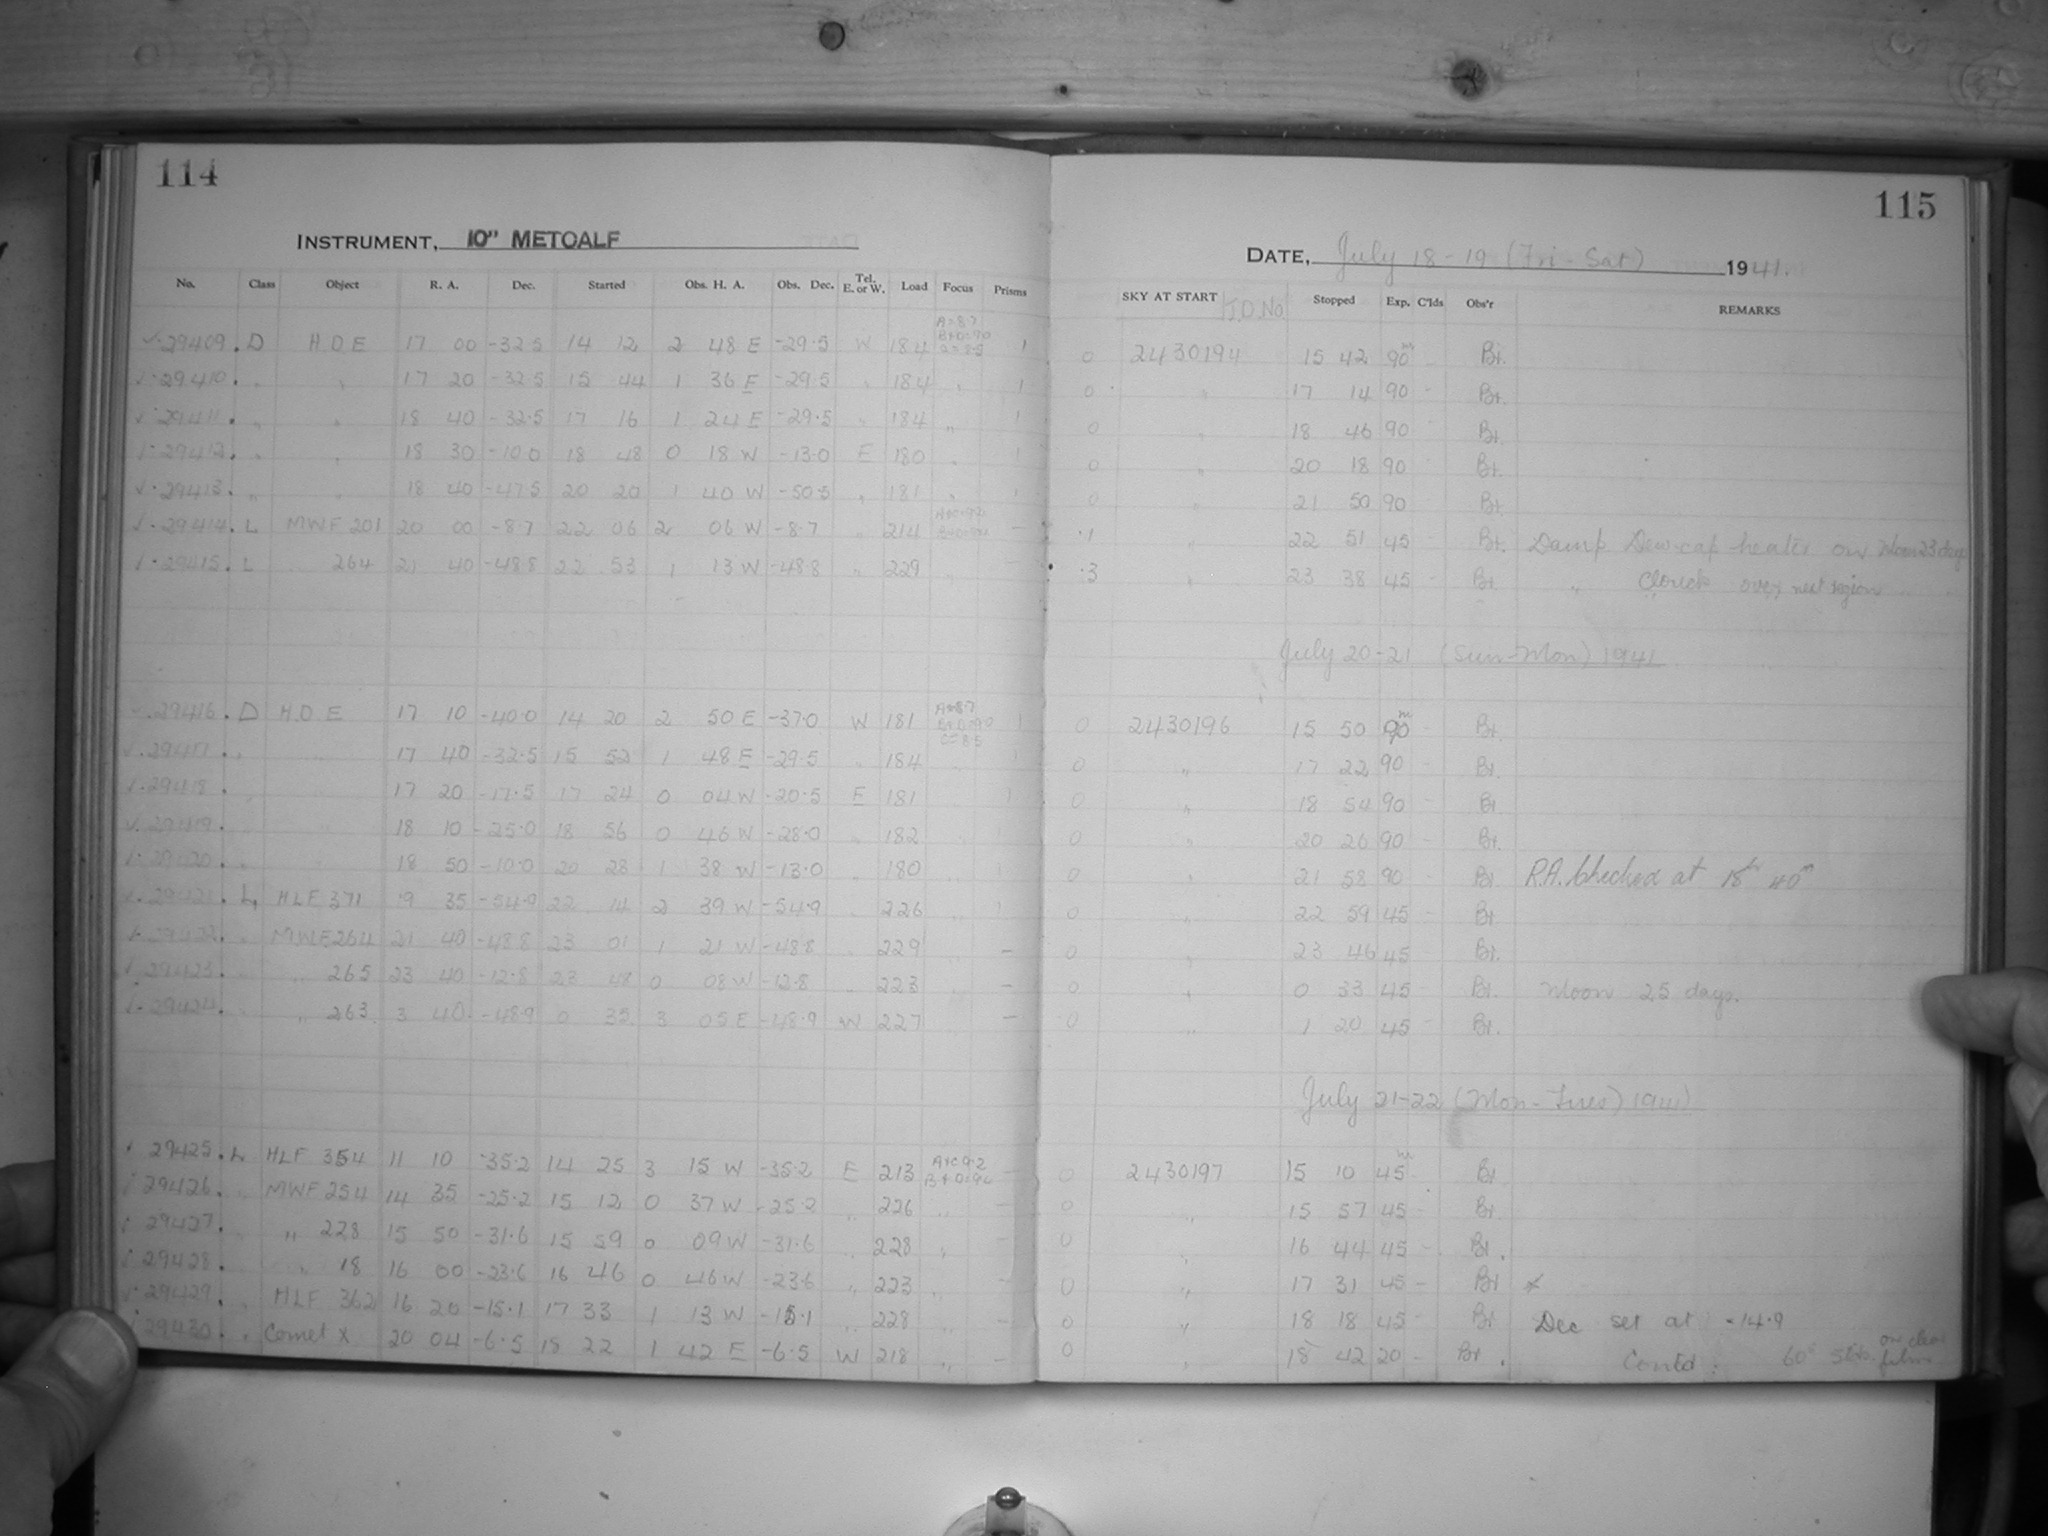 114
INSTRUMENT, 10" METCALF
No. Class Object R. A. Dec. Started Obs. H. A. Obs. Dec. Tel. E. or W. Load Focus Prisms
29409. D H.D.E 17 00 -32.5 14 12 2 48 E -29.5 W 184 1
29410. " " 17 20 -32.5 15 44 1 36 E -29.5 " 184 " 1
29411. " " 18 40 -32.5 17 16 1 24 E -29.5 " 184 " 1
29412. " " 18 30 -10.0 18 48 0 18 W -13.0 E 180 " 1
29413. " " 18 40 -47.5 20 20 1 40 W -50.5 " 181 " 1
29414. L MWF 201 20 00 -8.7 22 06 2 06 W -8.7 214 -
29415. L 264 21 40 -48.8 22 53 1 13 W -48.8 " 229 "
29416. D H.D.E 17 10 -40.0 14 20 2 50 E -37.0 W 181 A=8.7 B+D=9.0 C=8.5 1
29417. " 17 40 -32.5 15 52 1 48 E -29.5 " 184 1
29418. " 17 20 -17.5 17 24 0 04 W -20.5 E 181 1
29419. " 18 10 -25.0 18 56 0 46 W -28.0 " 182
29420. " 18 50 -10.0 20 28 1 38 W -13.0 " 180
29421. L HLF 371 19 35 -54.9 22 14 2 39 W -54.9 226
29422. " MWF 264 21 40 -48.8 23 01 1 21 W -48.8 " 229 -
29423. " 265 23 40 -12.8 23 48 0 08 W -12.8 " 223 -
29424. " 263 3 40 -48.9 0 35 3 05 E -48.9 W 227 -
29425. L HLF 354 11 10 -35.2 14 25 3 15 W -35.2 E 213 A+C 9.2 -
29426. " MWF 254 14 35 -25.2 15 12 0 37 W -25.2 " 226 " -
29427. " 228 15 50 -31.6 15 59 0 09 W -31.6 228 " -
29428. " 18 16 00 -23.6 16 46 0 46 W -23.6 " 223 " -
29429. " HLF 362 16 20 -15.1 17 33 1 13 W -15.1 " 228 " -
29430. " Comet X 20 04 -6.5 18 22 1 42 E -6.5 W 218 " -
115
DATE, July 18-19 (Fri-Sat) 1941.
SKY AT START J.D.No. Stopped Exp. C'lds Obs'r REMARKS
0 2430194 15 42 90m - Bt.
0 " 17 14 90 - Bt.
0 " 18 46 90 Bt.
0 " 20 18 90 - Bt.
0 " 21 50 90 Bt.
.1 " 22 51 45 - Bt. Damp. Dew-cap heater on Moon 23 days
.3 " 23 38 45 - Bt. " Clouds over next region
July 20-21 (Sun-Mon) 1941
0 2430196 15 50 90m - Bt.
0 " 17 22 90 - Bt.
0 " 18 54 90 - Bt
0 " 20 26 90 - Bt.
0 " 21 58 90 - Bt. R.A. checked at 18h 40m
0 22 59 45 - Bt
0 " 23 46 45 Bt.
0 " 0 33 45 - Bt. Moon 25 days.
0 " 1 20 45 - Bt.
July 21-22 (Mon-Tues) 1941
0 2430197 15 10 45m - Bt
0 " 15 57 45 - Bt
0 " 16 44 45 - Bt.
0 " 17 31 45 - Bt x
0 " 18 18 45 - Bt Dec set at -14.9
0 " 18 42 20 - Bt. Contd: